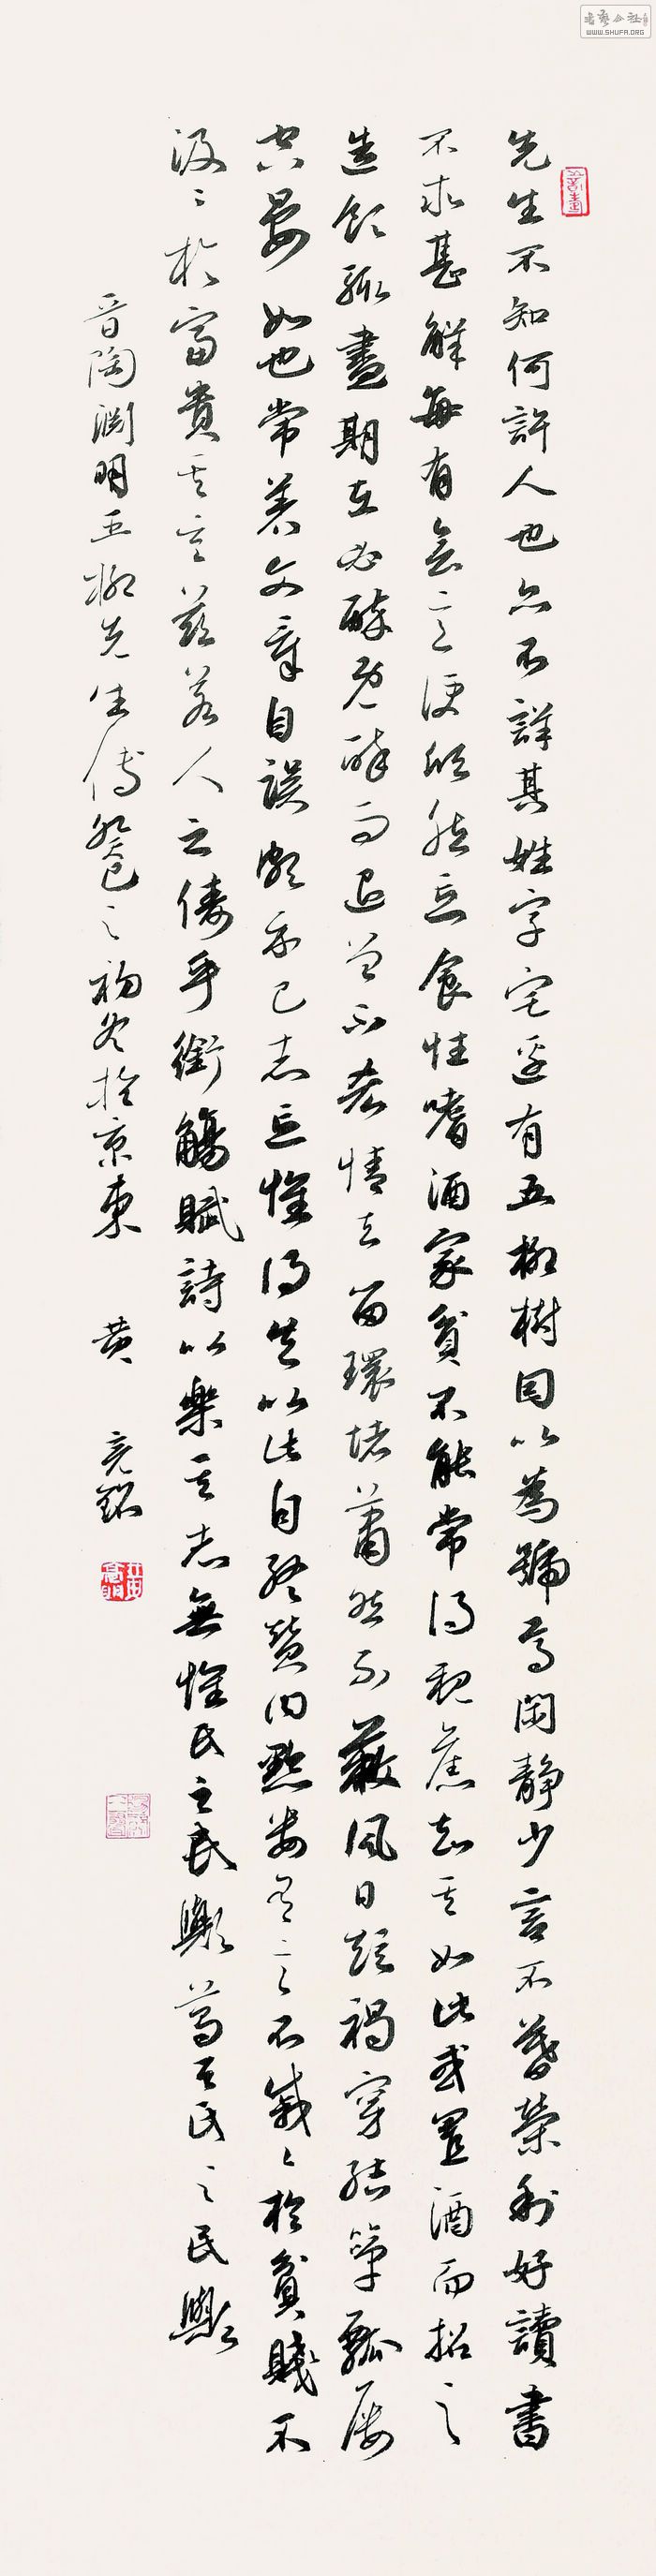 先生不知何許人也亦不詳其姓字宅邊有五柳樹因以為號焉閑靜少言不慕榮利好讀書
不求甚解每有會意便欣然忘食性嗜酒家貧不能常得親舊知其如此或置酒而招之
造飲輒盡期在必醉既醉而退曾不吝情去留環堵蕭然不蔽風日短褐穿結簞瓢屢
空晏如也常著文章自娛頗示己志忘懷得失以此自終贊曰黔婁有言不戚戚於貧賤不
汲汲於富貴其言茲若人之儔乎銜觴賦詩以樂其志無懷氏之民歟葛天氏之民歟
晉陶淵明五柳先生傳 之初冬於京東 黃
WWW.SHUFA.ORG